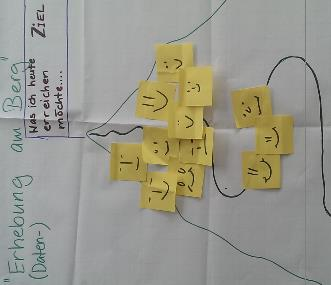 "Erhebung am Berg"
(Daten-)
ZIEL
Was ich heute
erreichen
möchte....